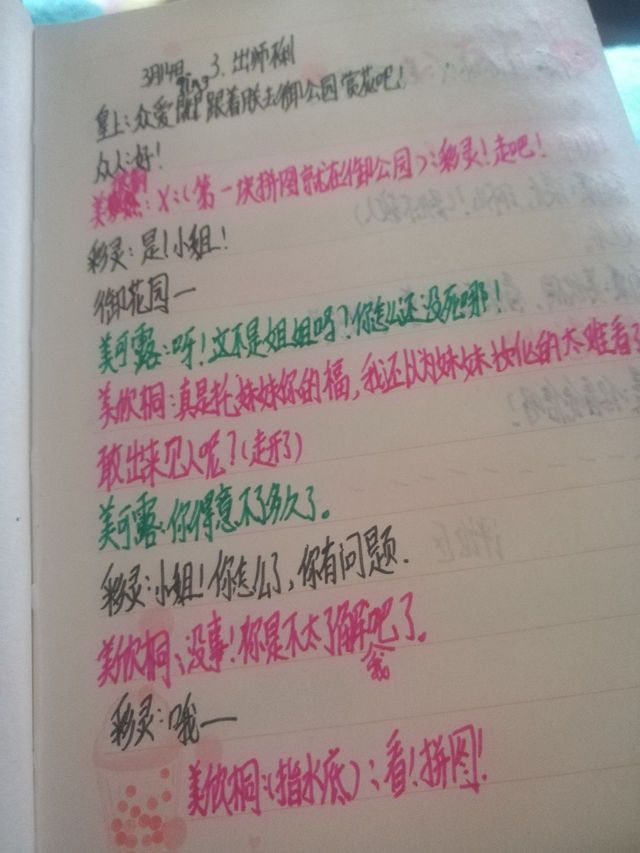 3月14日 3. 出师不利
皇上:众爱卿跟着朕去御公园赏花吧!
众人:好!
美欣桐:X:(第一块拼图就在御公园):彩灵!走吧!
彩灵:是!小姐!
御花园一
美可露:呀!这不是姐姐吗?你怎么还没死哪!
美欣桐:真是托妹妹你的福,我还以为妹妹妆化的太难看
敢出来见人呢?(走开了)
美可露:你得意不了多久了。
彩灵:小姐!你怎么了,你有问题.
美欣桐:没事!你是不太了解我吧了。
彩灵:哦一
美欣桐:(指水底):看!拼图!